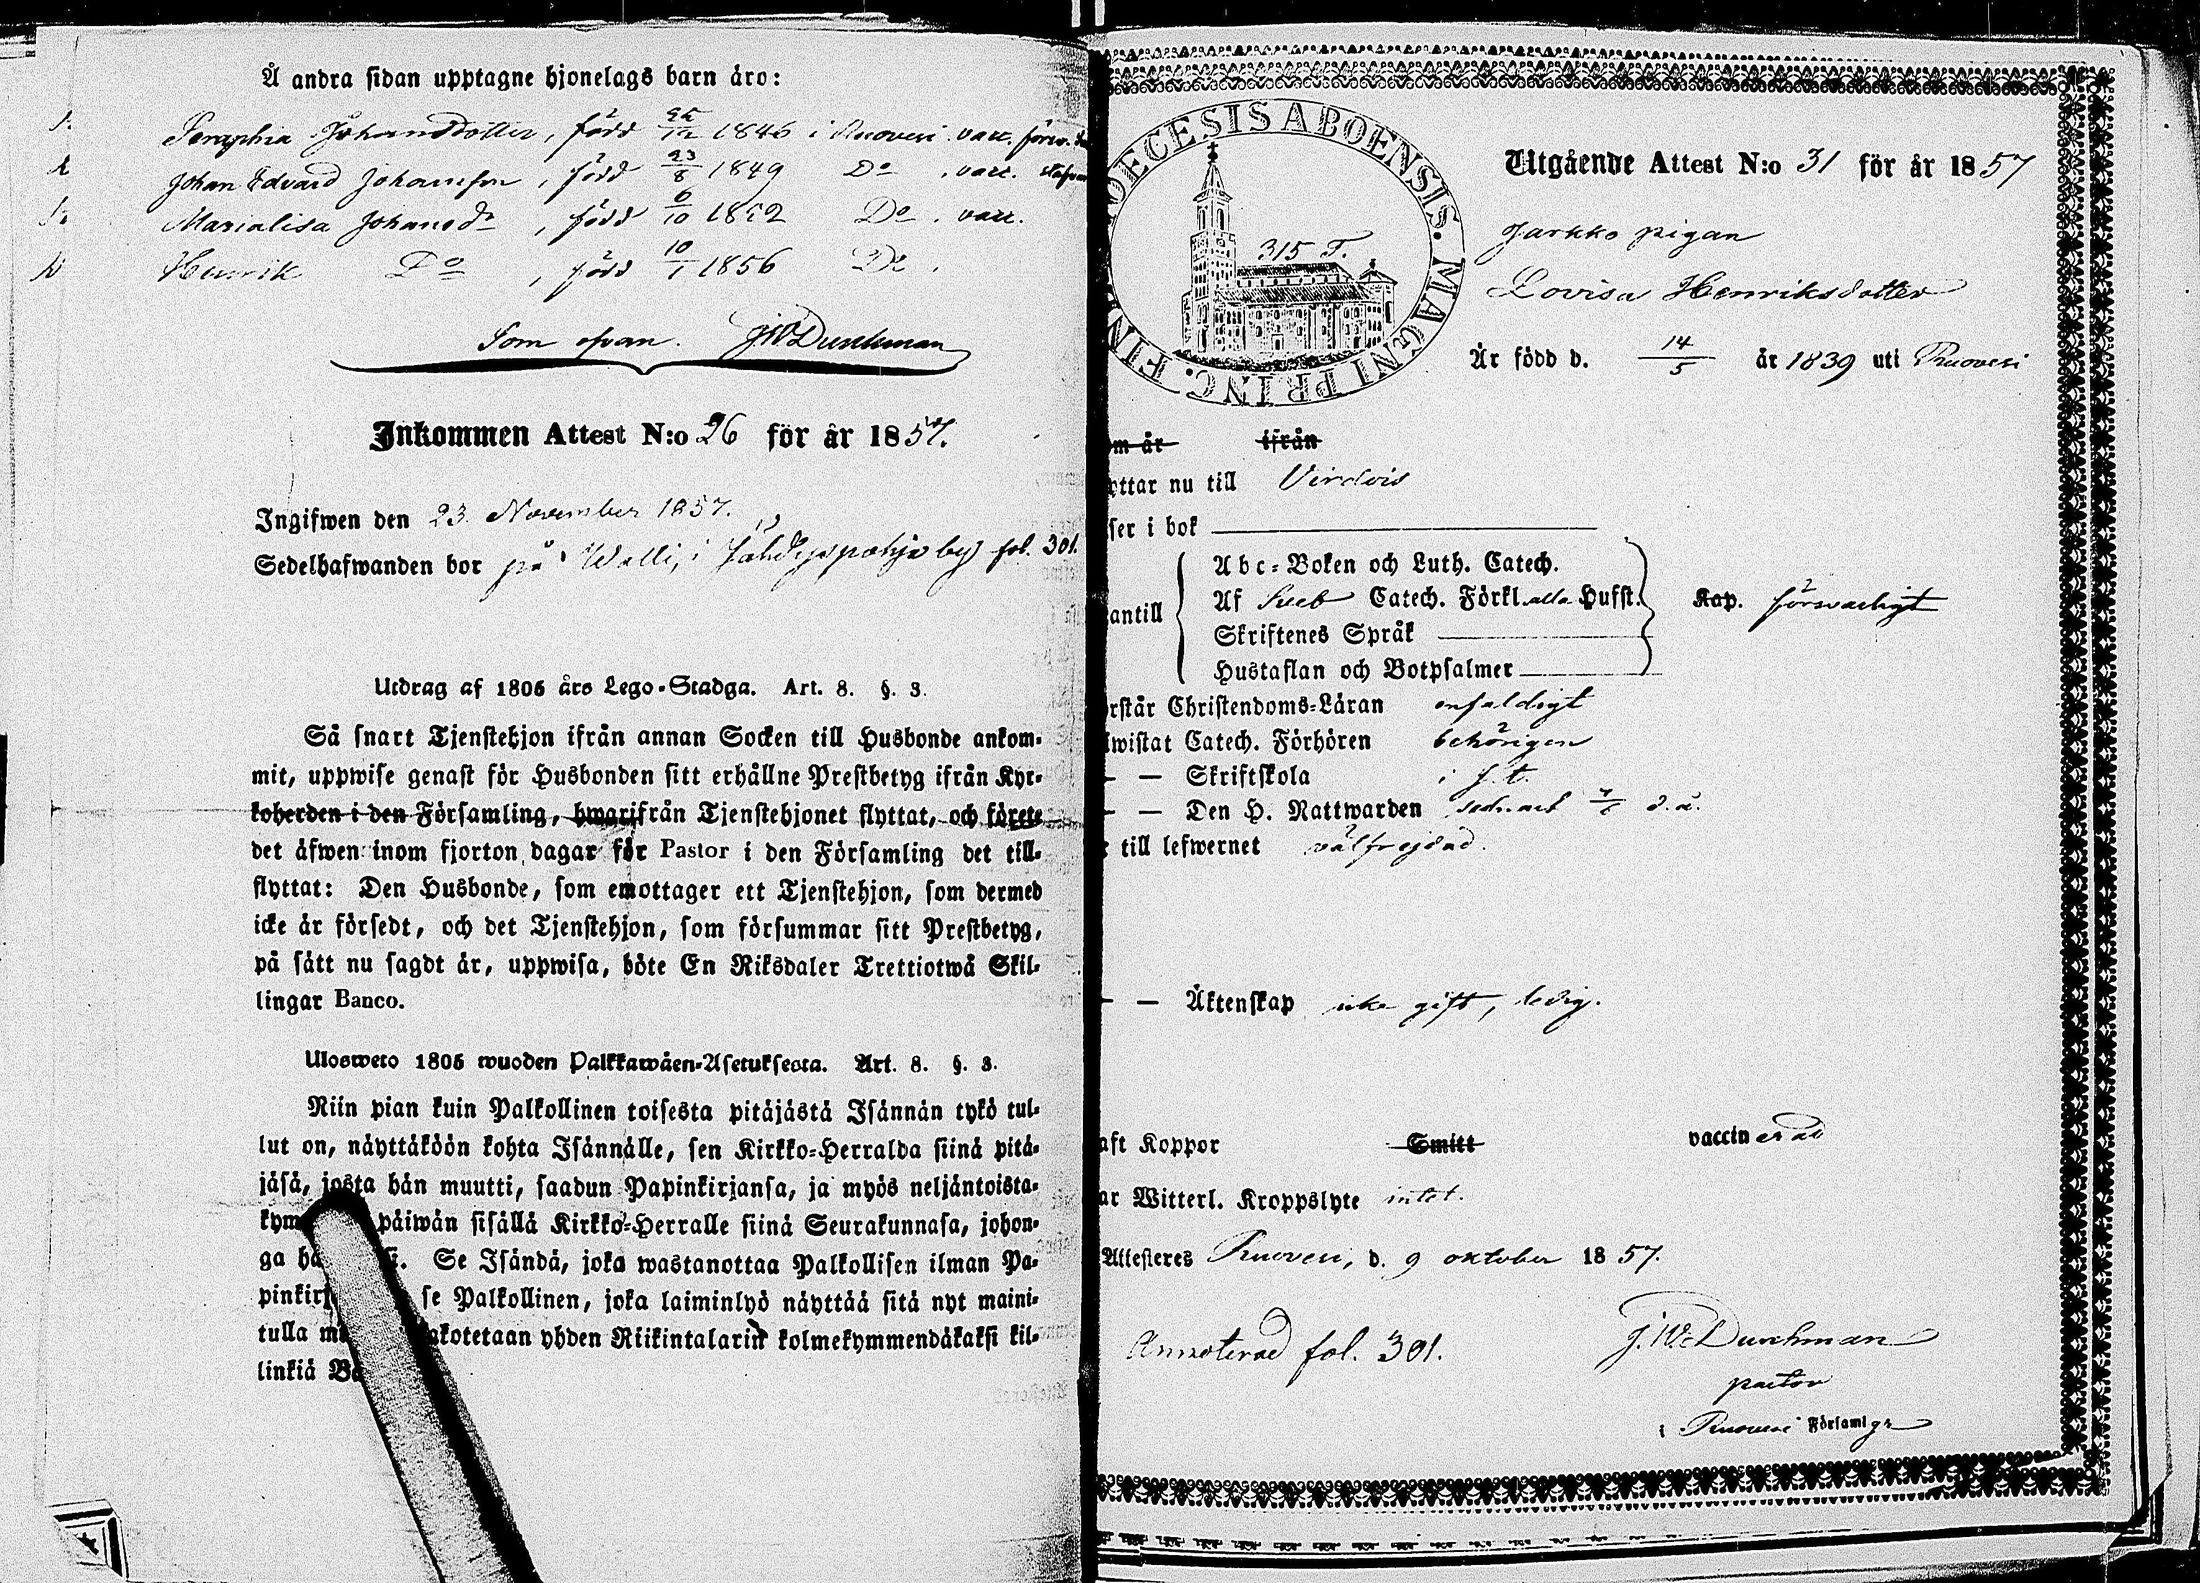 Å andra sidan upptagne hjonelags barn äro:
Seraphia Johansdotter, född 25/12 1846 i Ruovesi. vacc.
Johan Edvard Johansson, född 23/8 1849 Do. vacc.
Marialisa Johansdr, född 6/10 1852 Do. vacc.
Henrik Do, född 10/1 1856 Do.
Som ofvan. J W Durchman
Inkommen Attest N:o 26 för år 1857.
Ingifwen den 23 November 1857.
Sedelhafwanden bor på Walli, i by fol. 301.
Utdrag af 1805 års Lego-Stadga. Art. 8. §. 3.
Så snart Tjenstehjon ifrån annan Socken till Husbonde ankom-
mit, uppwise genast för Husbonden sitt erhållne Prestbetyg ifrån Kyr-
koherden i den Församling, hwarifrån Tjenstehjonet flyttat, och förete
det äfwen inom fjorton dagar för Pastor i den Församling det till-
flyttat: Den Husbonde, som emottager ett Tjenstehjon, som dermed
icke är försedt, och det Tjenstehjon, som försummar sitt Prestbetyg,
på sätt nu sagdt är, uppwisa, böte En Riksdaler Trettiotwå Skil-
lingar Banco.
Ulosweto 1805 wuoden Palkkawäen-Asetuksesta. Art. 8. §. 3.
Niin pian kuin Palkollinen toisesta pitäjästä Isännän tykö tul-
lut on, näyttäköön kohta Isännälle, sen Kirkko-Herralda siinä pitä-
jäsä, josta hän muutti, saadun Papinkirjansa, ja myös neljäntoista-
kym päiwän sisällä Kirkko-Herralle siinä Seurakunnasa, johon-
ga hä si. Se Isändä, joka wastanottaa Palkollisen ilman Pa-
pinkirj se Palkollinen, joka laiminlyö näyttää sitä nyt maini-
tulla m akotetaan yhden Riikintalarin kolmekymmendäkaksi kil-
linkiä Ba
DIOECESIS ABOENSIS. MAGNI PRINC. FIN
315 T.
Utgående Attest N:o 31 för år 1857
Jarkko pigan
Lovisa Henriksdotter
Är född d. 14/5 år 1839 uti Ruovesi
om år ifrån
yttar nu till Virdois
ser i bok
Abc-Boken och Luth. Catech.
antill Af Sveb Catech. Förkl. alla Hufst. Kap. försvarligt
Skriftenes Språk
Hustaflan och Botpsalmer
rstår Christendoms-Läran enfaldigt
wistat Catech. Förhören behörigen
— — Skriftskola i s. t.
— — Den H. Nattwarden d. å.
till lefwernet välfrejdad.
— — Äktenskap icke gift, ledig.
aft Koppor Smitt vaccinerad
ar Witterl. Kroppslyte intet.
Attesteres Ruovesi, d. 9 oktober 1857.
Annoterad fol. 301.
J. W. Durchman
pastor
i Ruovesi Församlgr